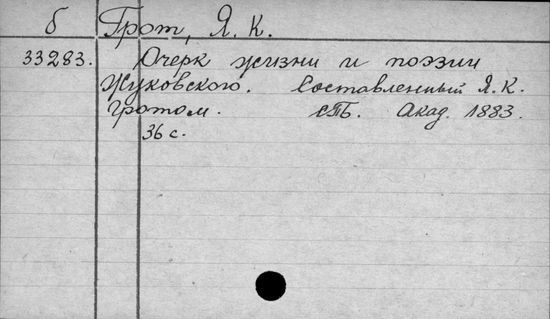 б Грот, Я. К.
33283. Очерк жизни и поэзии
Жуковского. Составленный Я. К.
Гротом. СПБ. Акад. 1883.
36 с.